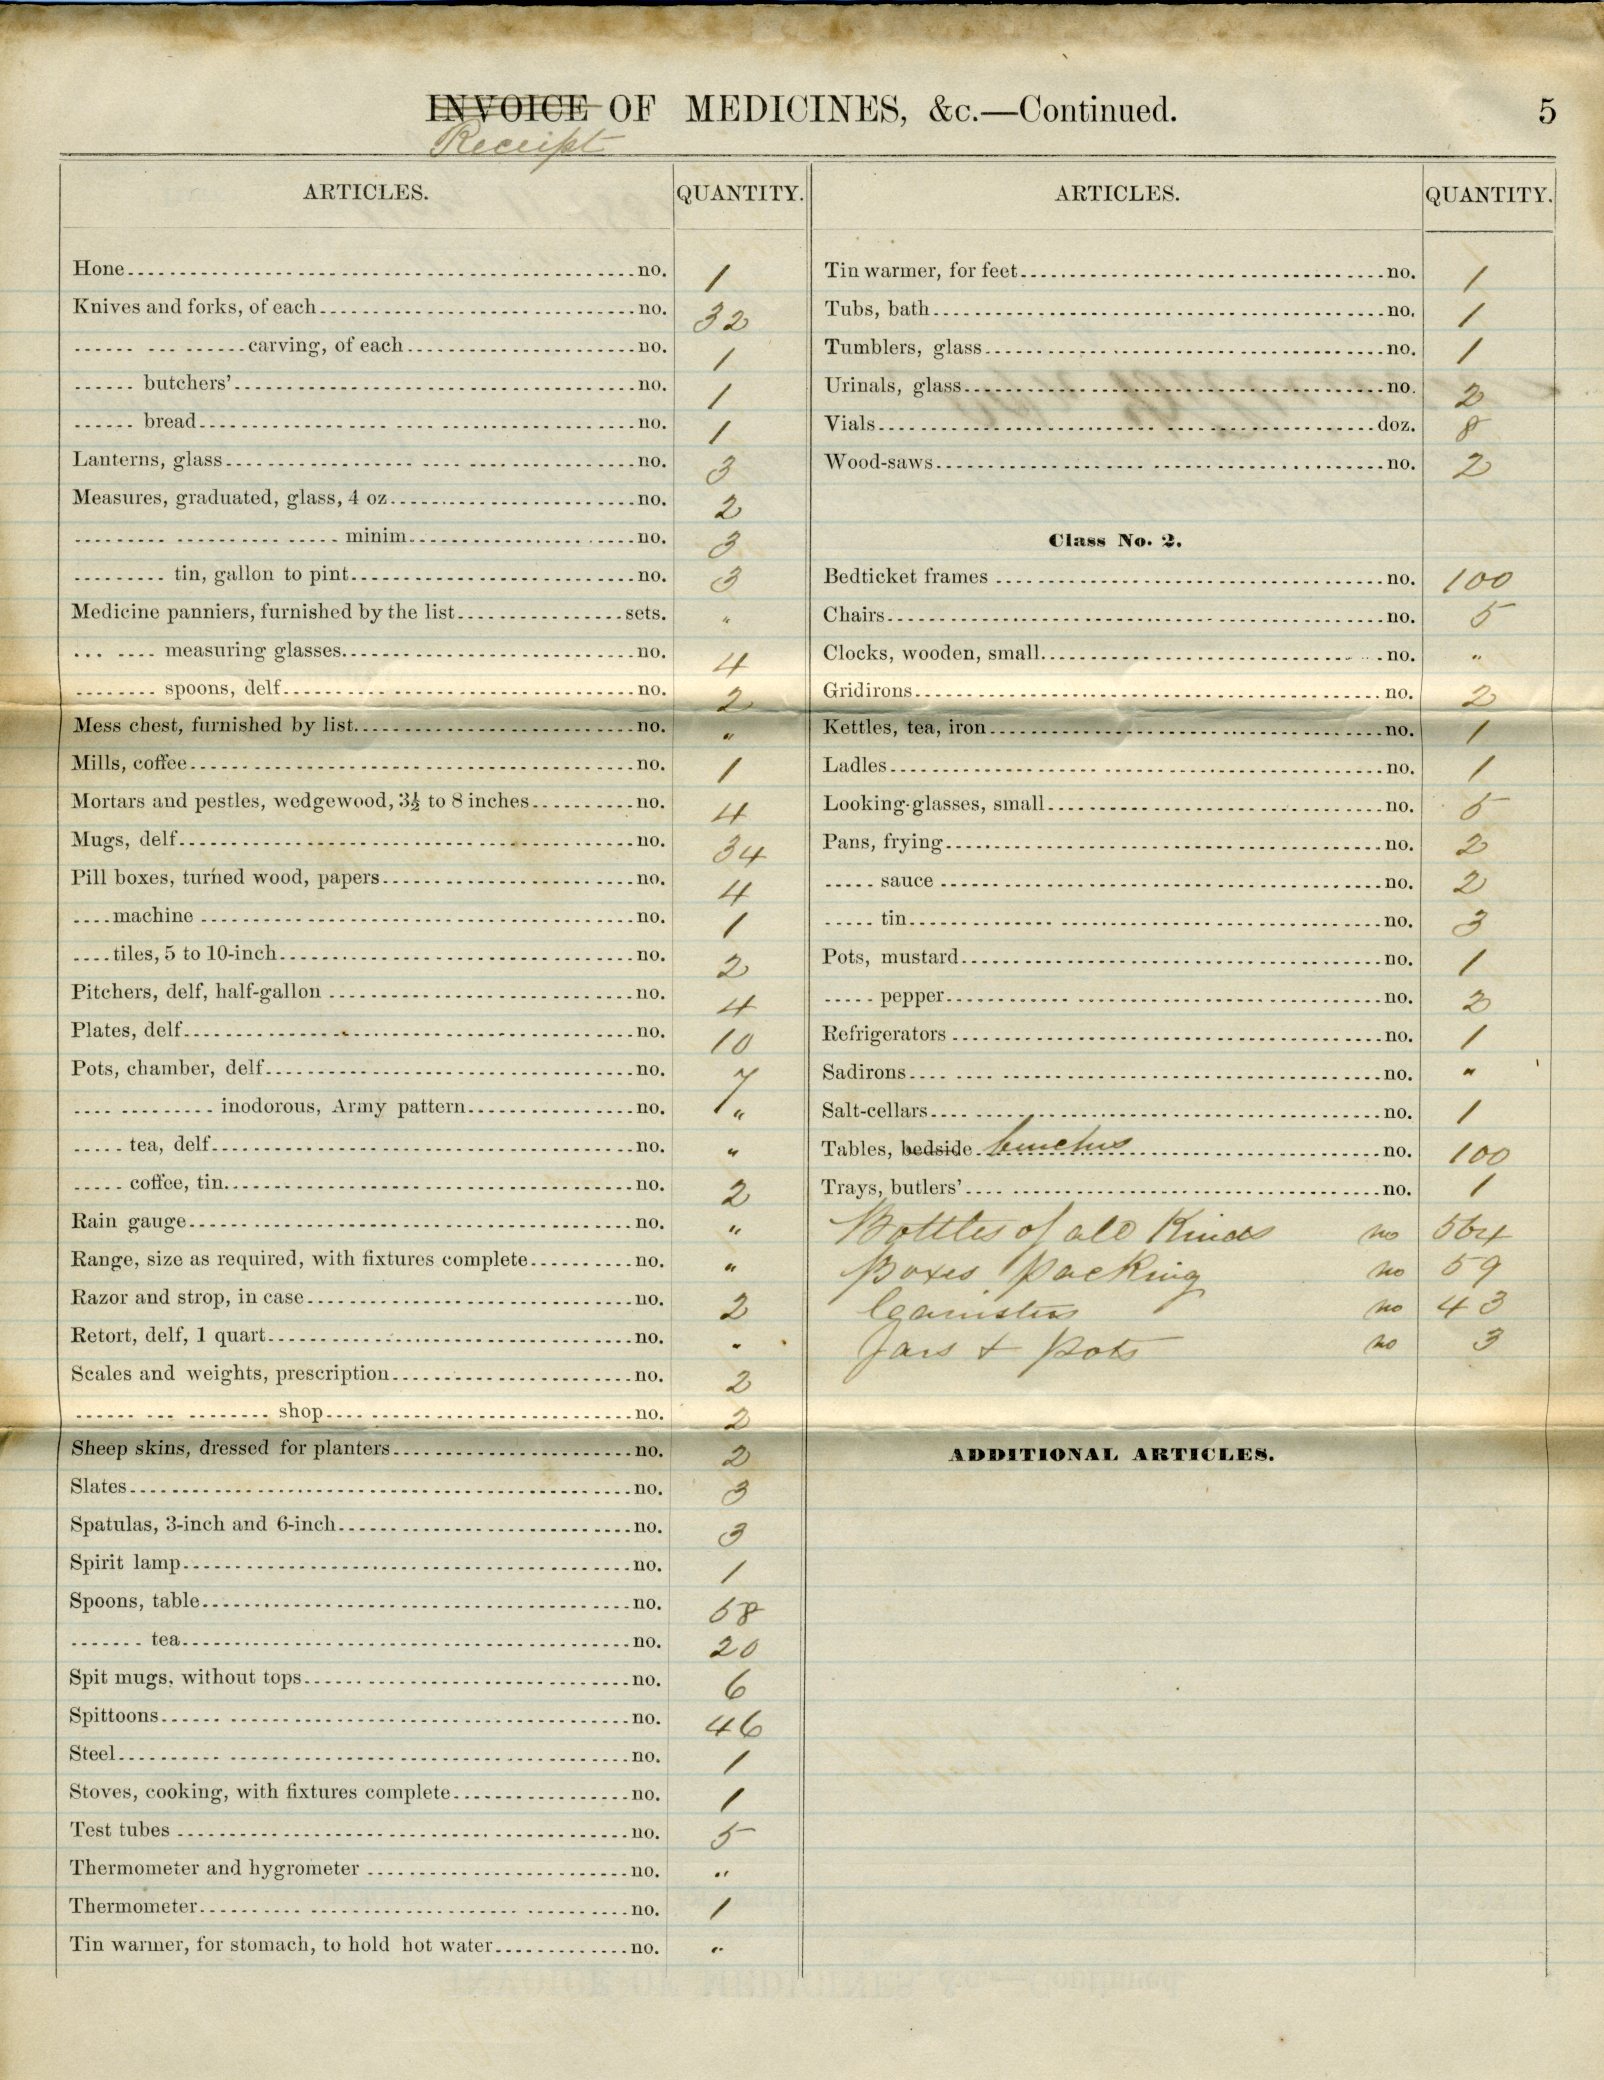 INVOICE OF MEDICINES, &c.—Continued. 5
Receipt
ARTICLES. QUANTITY.
Hone no. 1
Knives and forks, of each no. 32
carving, of each no. 1
butchers' no. 1
bread no. 1
Lanterns, glass no. 3
Measures, graduated, glass, 4 oz no. 2
minim no. 3
tin, gallon to pint no. 3
Medicine panniers, furnished by the list sets. "
measuring glasses no. 4
spoons, delf no. 2
Mess chest, furnished by list no. "
Mills, coffee no. 1
Mortars and pestles, wedgewood, 3½ to 8 inches no. 4
Mugs, delf no. 34
Pill boxes, turned wood, papers no. 4
machine no. 1
tiles, 5 to 10-inch no. 2
Pitchers, delf, half-gallon no. 4
Plates, delf no. 10
Pots, chamber, delf no. 7
inodorous, Army pattern no. "
tea, delf no. "
coffee, tin no. 2
Rain gauge no. "
Range, size as required, with fixtures complete no. "
Razor and strop, in case no. 2
Retort, delf, 1 quart no. "
Scales and weights, prescription no. 2
shop no. 2
Sheep skins, dressed for planters no. 2
Slates no. 3
Spatulas, 3-inch and 6-inch no. 3
Spirit lamp no. 1
Spoons, table no. 58
tea no. 20
Spit mugs, without tops no. 6
Spittoons no. 46
Steel no. 1
Stoves, cooking, with fixtures complete no. 1
Test tubes no. 5
Thermometer and hygrometer no. "
Thermometer no. 1
Tin warmer, for stomach, to hold hot water no. "
ARTICLES. QUANTITY.
Tin warmer, for feet no. 1
Tubs, bath no. 1
Tumblers, glass no. 1
Urinals, glass no. 2
Vials doz. 8
Wood-saws no. 2
Class No. 2.
Bedticket frames no. 100
Chairs no. 5
Clocks, wooden, small no. "
Gridirons no. 2
Kettles, tea, iron no. 1
Ladles no. 1
Looking-glasses, small no. 5
Pans, frying no. 2
sauce no. 2
tin no. 3
Pots, mustard no. 1
pepper no. 2
Refrigerators no. 1
Sadirons no. "
Salt-cellars no. 1
Tables, bedside no. 100
Trays, butlers' no. 1
Bottles of all Kinds no 564
Boxes Packing no 59
Cannisters no 43
Jars & Pots no 3
ADDITIONAL ARTICLES.